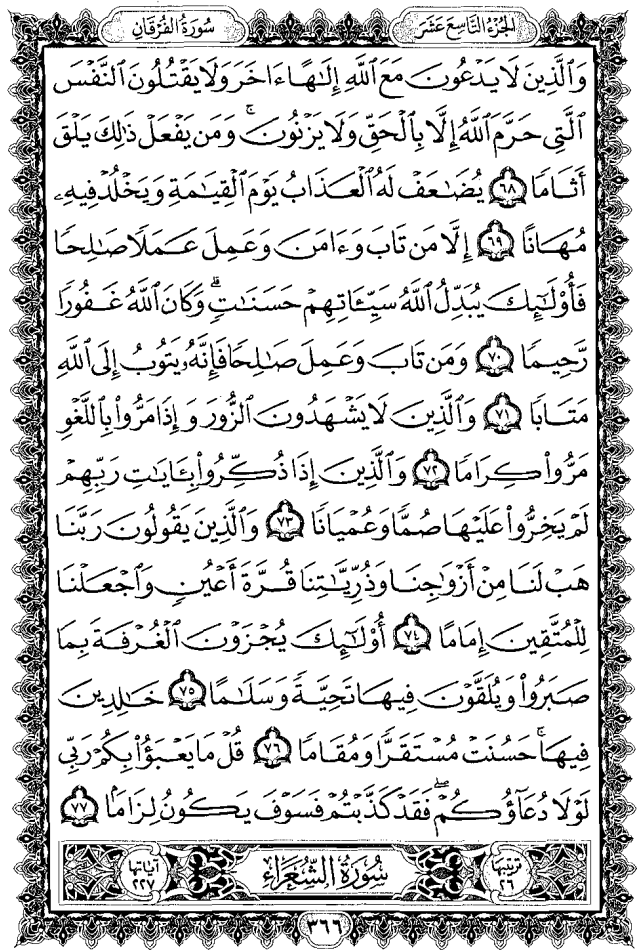 سُورَةُ الفُرْقَان
الجُزْءُ التَّاسِعَ عَشَرَ
وَٱلَّذِينَ لَا يَدْعُونَ مَعَ ٱللَّهِ إِلَٰهًا ءَاخَرَ وَلَا يَقْتُلُونَ ٱلنَّفْسَ
ٱلَّتِى حَرَّمَ ٱللَّهُ إِلَّا بِٱلْحَقِّ وَلَا يَزْنُونَ ۚ وَمَن يَفْعَلْ ذَٰلِكَ يَلْقَ
أَثَامًا ٦٨ يُضَٰعَفْ لَهُ ٱلْعَذَابُ يَوْمَ ٱلْقِيَٰمَةِ وَيَخْلُدْ فِيهِۦ
مُهَانًا ٦٩ إِلَّا مَن تَابَ وَءَامَنَ وَعَمِلَ عَمَلًا صَٰلِحًا
فَأُو۟لَٰٓئِكَ يُبَدِّلُ ٱللَّهُ سَيِّـَٔاتِهِمْ حَسَنَٰتٍ ۗ وَكَانَ ٱللَّهُ غَفُورًا
رَّحِيمًا ٧٠ وَمَن تَابَ وَعَمِلَ صَٰلِحًا فَإِنَّهُۥ يَتُوبُ إِلَى ٱللَّهِ
مَتَابًا ٧١ وَٱلَّذِينَ لَا يَشْهَدُونَ ٱلزُّورَ وَإِذَا مَرُّوا۟ بِٱللَّغْوِ
مَرُّوا۟ كِرَامًا ٧٢ وَٱلَّذِينَ إِذَا ذُكِّرُوا۟ بِـَٔايَٰتِ رَبِّهِمْ
لَمْ يَخِرُّوا۟ عَلَيْهَا صُمًّا وَعُمْيَانًا ٧٣ وَٱلَّذِينَ يَقُولُونَ رَبَّنَا
هَبْ لَنَا مِنْ أَزْوَٰجِنَا وَذُرِّيَّٰتِنَا قُرَّةَ أَعْيُنٍ وَٱجْعَلْنَا
لِلْمُتَّقِينَ إِمَامًا ٧٤ أُو۟لَٰٓئِكَ يُجْزَوْنَ ٱلْغُرْفَةَ بِمَا
صَبَرُوا۟ وَيُلَقَّوْنَ فِيهَا تَحِيَّةً وَسَلَٰمًا ٧٥ خَٰلِدِينَ
فِيهَا ۚ حَسُنَتْ مُسْتَقَرًّا وَمُقَامًا ٧٦ قُلْ مَا يَعْبَؤُا۟ بِكُمْ رَبِّى
لَوْلَا دُعَآؤُكُمْ ۖ فَقَدْ كَذَّبْتُمْ فَسَوْفَ يَكُونُ لِزَامًۢا ٧٧
ترتيبها ٢٦ سُورَةُ الشُّعَرَاءِ آياتها ٢٢٧
٣٦٦